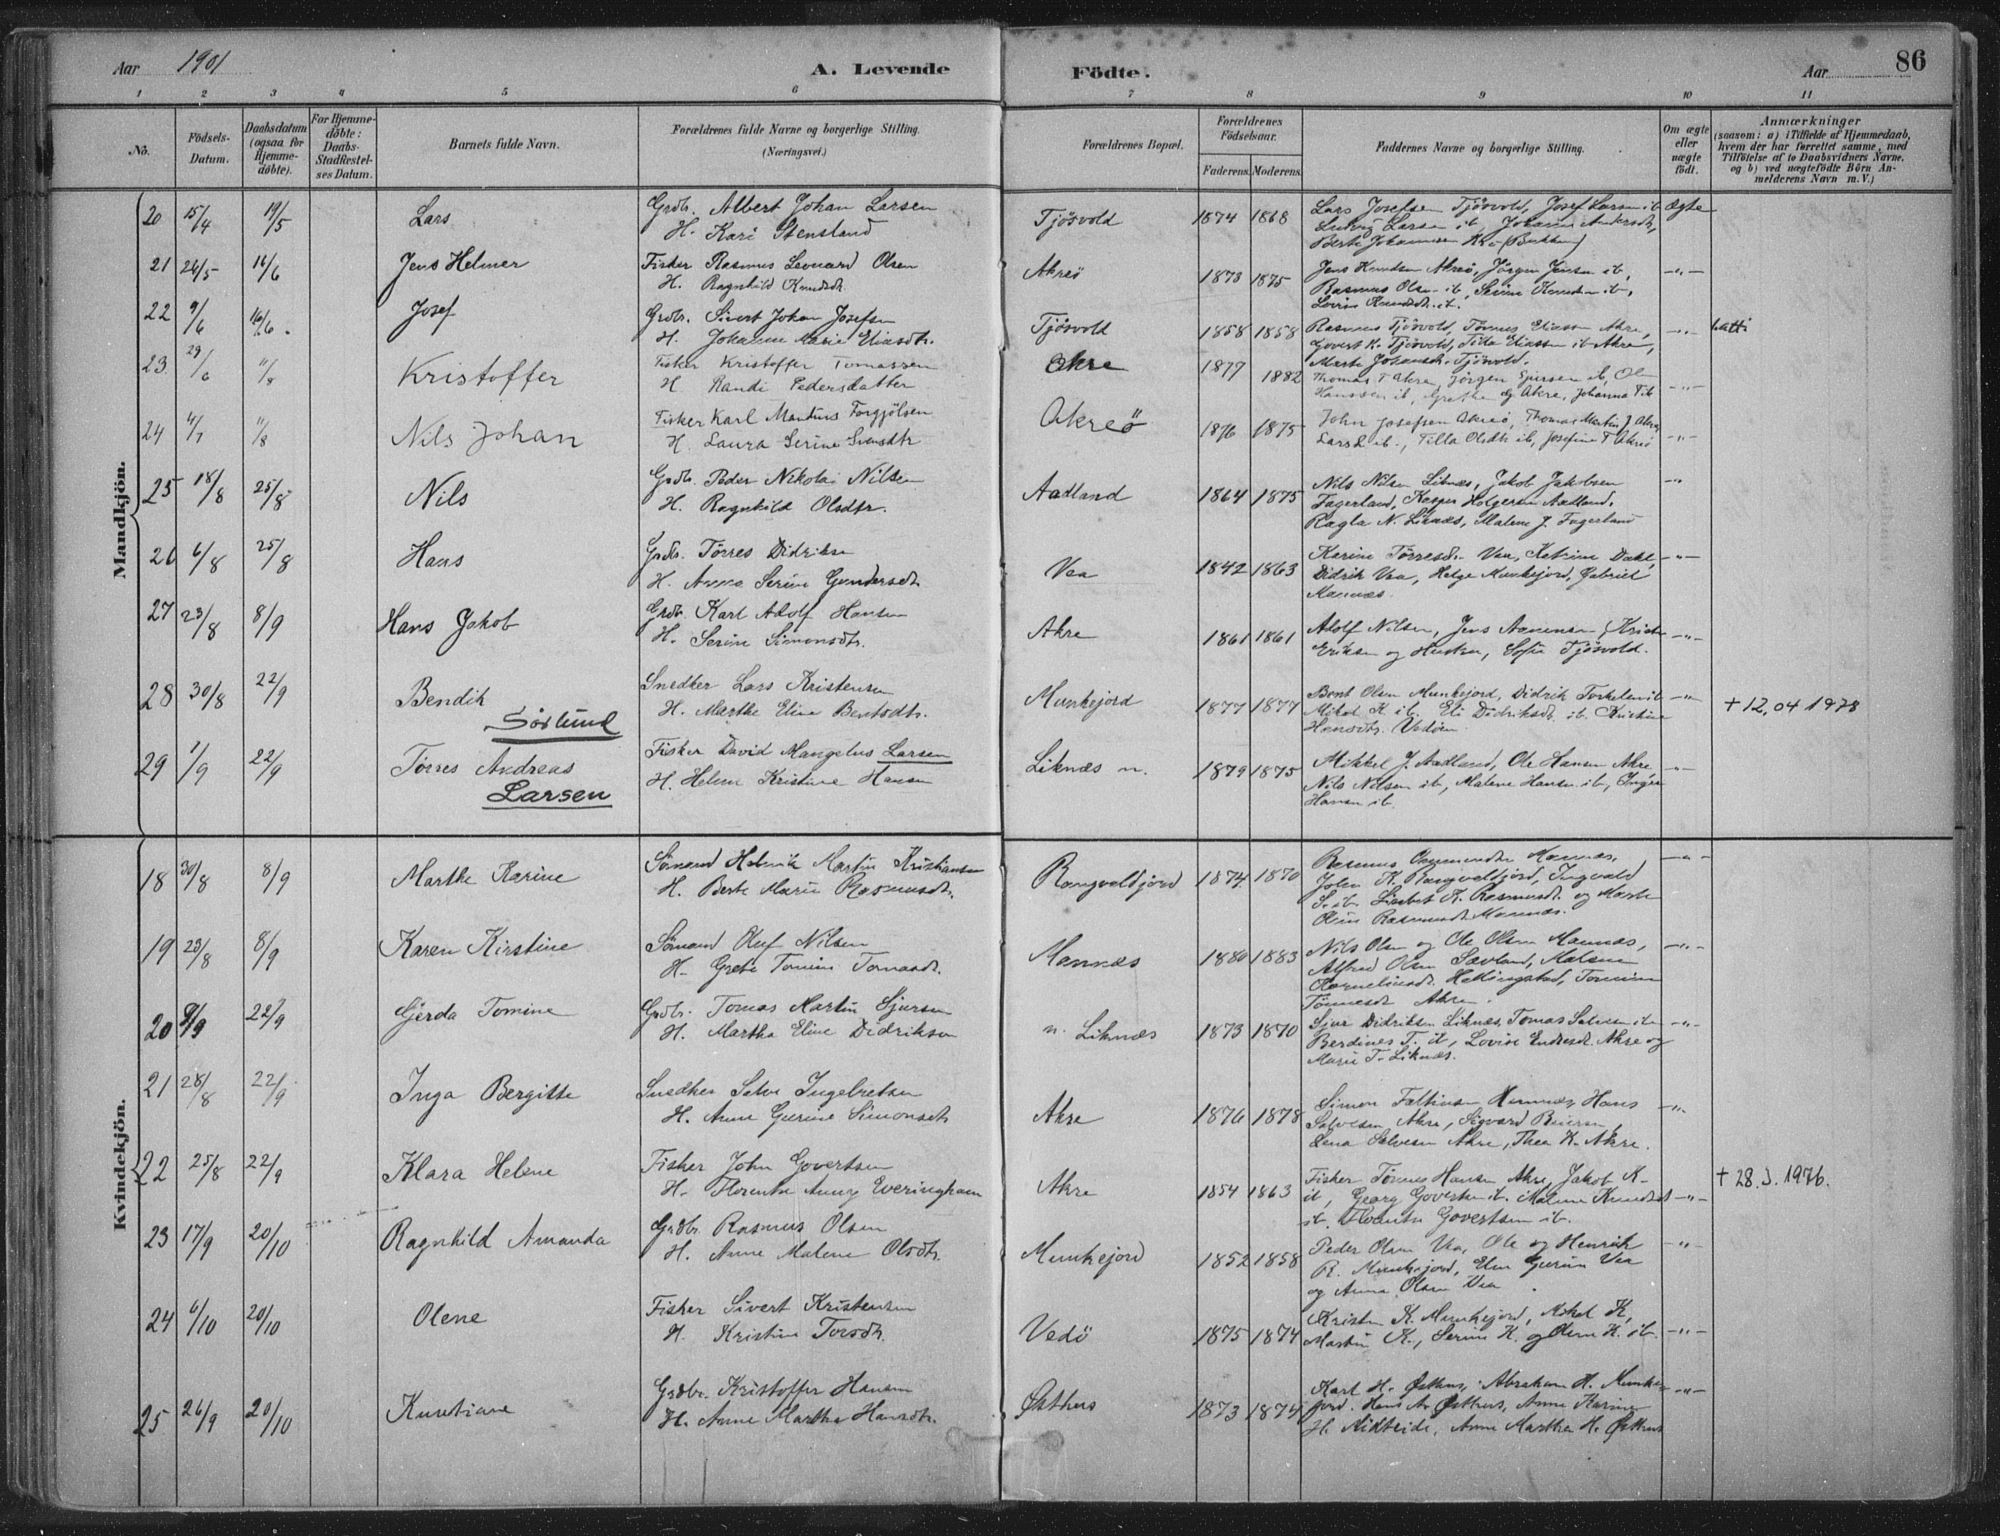 Aar 1901
A. Levende
Födte.
Aar
86
1 2 3 4 5 6 7 8 9 10 11
No.
Födsels-Datum.
Daabsdatum (ogsaa for Hjemmedöbte).
For Hjemmedöbte: Daabs-Stadfestelses Datum.
Barnets fulde Navn.
Forældrenes fulde Navne og borgerlige Stilling.
(Næringsvei.)
Forældrenes Bopæl.
Forældrenes Födselsaar.
Faderens. Moderens.
Faddernes Navne og borgerlige Stilling.
Om ægte eller uægte födt.
Anmærkninger
(saasom: a) i Tilfælde af Hjemmedaab, hvem der har forrettet samme, med Tilföielse af to Daabsvidners Navne, og b) ved uægtefödte Börn Anmelderens Navn m. V.)
Mandkjön.
20 15/4 19/5 Lars Grdbr. Albert Johan Larsen Tjösvold 1874 1868 Lars Josefsen Tjösvold, Josef Larsen ib Ægte
H. Kari Stensland Ludvig Larsen ib,
21 26/5 16/6 Jens Helmer Fisker Rasmus Leonard Olsen Akreö 1873 1875 Jens Knudsen Akreö, Jörgen Jensen ib, -"-
H. Ragnhild Knudsdt. Rasmus Olsen ib, Serine Knudsen ib,
22 9/6 16/6. Josef Grdbr. Sivert Johan Josefsen Tjösvold 1858 1858 Rasmus Tjösvold, Tönnes Eliassen Akre, -"-
H. Johanne Marie Eliasdtr. Govert K. Tjösvold,
23 29/6 11/8 Kristoffer Fisker Kristoffer Tomassen Akre 1877 1882 Thomas T Akre, Jörgen Sjursen ib, Ole -"-
H Randi Pedersdatter Hanssen ib, Grethe Akre, Johanna T ib
24 4/7 11/8 Nils Johan Fisker Karl Martinus Torgjölsen Akreö 1876 1875 John Josefsen Akreö, Thomas Martin J. Akreö -"-
H. Laura Serine Svendsdtr Lars L ib., Tilla Olsdtr ib, Josefine T Akreö
25 18/8 25/8 Nils Grdbr. Peder Nikolai Nilsen Aadland 1864 1875 Nils Nilsen Liknæs, Jakob Jakobsen -"-
H. Ragnhild Olsdtr. Fagerland, Kasper Holgersen Aadland,
Ragla N. Liknæs, Malene J. Fagerland
26 6/8 25/8 Hans Grdbr. Törres Didriksen Vea 1842 1863 Karine Törresdt. Vea, Katrine Dahl, -"-
H. Anna Serine Gundersdt. Didrik Vea, Helge Munkejord, Gabriel
Mannæs.
27 23/8 8/9 Hans Jakob Grdbr. Karl Adolf Hansen Akre 1861 1861 Adolf Nilsen, Jens Aanensen, -"-
H. Serine Simonsdtr. Eriksen og Hustru, Sofie Tjösvold.
28 30/8 22/9 Bendik Snedker Lars Kristensen Munkejord 1877 1877 Bent Olsen Munkejord, Didrik Torkelsen ib -"- + 12.04 1978
Sörlund H. Marthe Eline Bentsdtr. Mikal K ib, Eli Didriksdt. ib. Kristine
Hansdtr. Vedöen
29 1/9 22/9 Törres Andreas Fisker David Mangelus Larsen Liknæs n. 1879 1875 Mikkel J. Aadland, Ole Hansen Akre -"-
Larsen H. Helene Kristine Hansen Nils Nilsen ib, Malene Hansen ib, Inger
Hansen ib.
Kvindekjön.
18 30/8 8/9 Marthe Karine Sömand Henrik Martin Kristiansen Rangveldjord 1874 1870 Rasmus Mannæs, -"-
H. Berte Marie Rasmusdt. John K. Rangveldjord, Ingvald
S. ib. Lisabet K. Rasmusdt. og Marte
Oline Rasmusdt. Mannæs.
19 23/8 8/9 Karen Kirstine Sömand Oluf Nilsen Mannæs 1880 1883 Nils Olsen og Ole Olsen Mannæs, -"-
H. Grete Tomine Tomasdt. Alfred Olsen Sævland, Malene
Kornelinsdt. Hettingstad, Tomine
Tönnesdt Akre.
20 9/9 22/9 Gjerda Tomine Grdbr. Tomas Martin Sjursen n. Liknæs 1873 1870 Sjur Didriksen Liknæs, Tomas Salvesen ib -"-
H. Martha Eline Didriksen Berdines T. ib, Lovise Endresdt. Akre og
Marie T. Liknæs.
21 28/8 22/9 Inga Bergitte Snedker Salve Ingebretsen Akre 1876 1878 Simon Hans -"-
H. Anne Gurine Simonsdt. Salvesen Akre, Sigvard
Lena Salvesen Akre, Thea K. Akre.
22 25/8 22/9 Klara Helene Fisker John Govertsen Akre 1854 1863 Fisker Tönnes Hansen Akre, Jakob K + 28.3.1976.
H. Florentse Anny Everingham ib, Georg Govertsen ib. Malene Knudsdt -"-
ib. Florentse Govertsen ib.
23 17/9 20/10 Ragnhild Amanda Grdbr. Rasmus Olsen Munkejord 1852 1858 Peder Olsen Vea, Ole og Henrik -"-
H. Anne Malene Olsdtr. R. Munkejord, Elen Gurine Vea
og Anna Olsen Vea.
24 6/10 20/10 Olene Fisker Sivert Kristensen Vedö 1875 1874 Kristen K. Munkejord, Mikal K, -"-
H. Kristine Torsdtr. Martin K., Serine K. og Olene K. ib.
25 26/9 20/10 Kunstiane Grdbr. Kristoffer Hansen Østhus 1873 1874 Karl H. Østhus, Abraham H. Munke- -"-
H. Anne Martha Hansdtr. jord. Hans A. Østhus, Anne Karine
H. , Anne Marthe H. Østhus